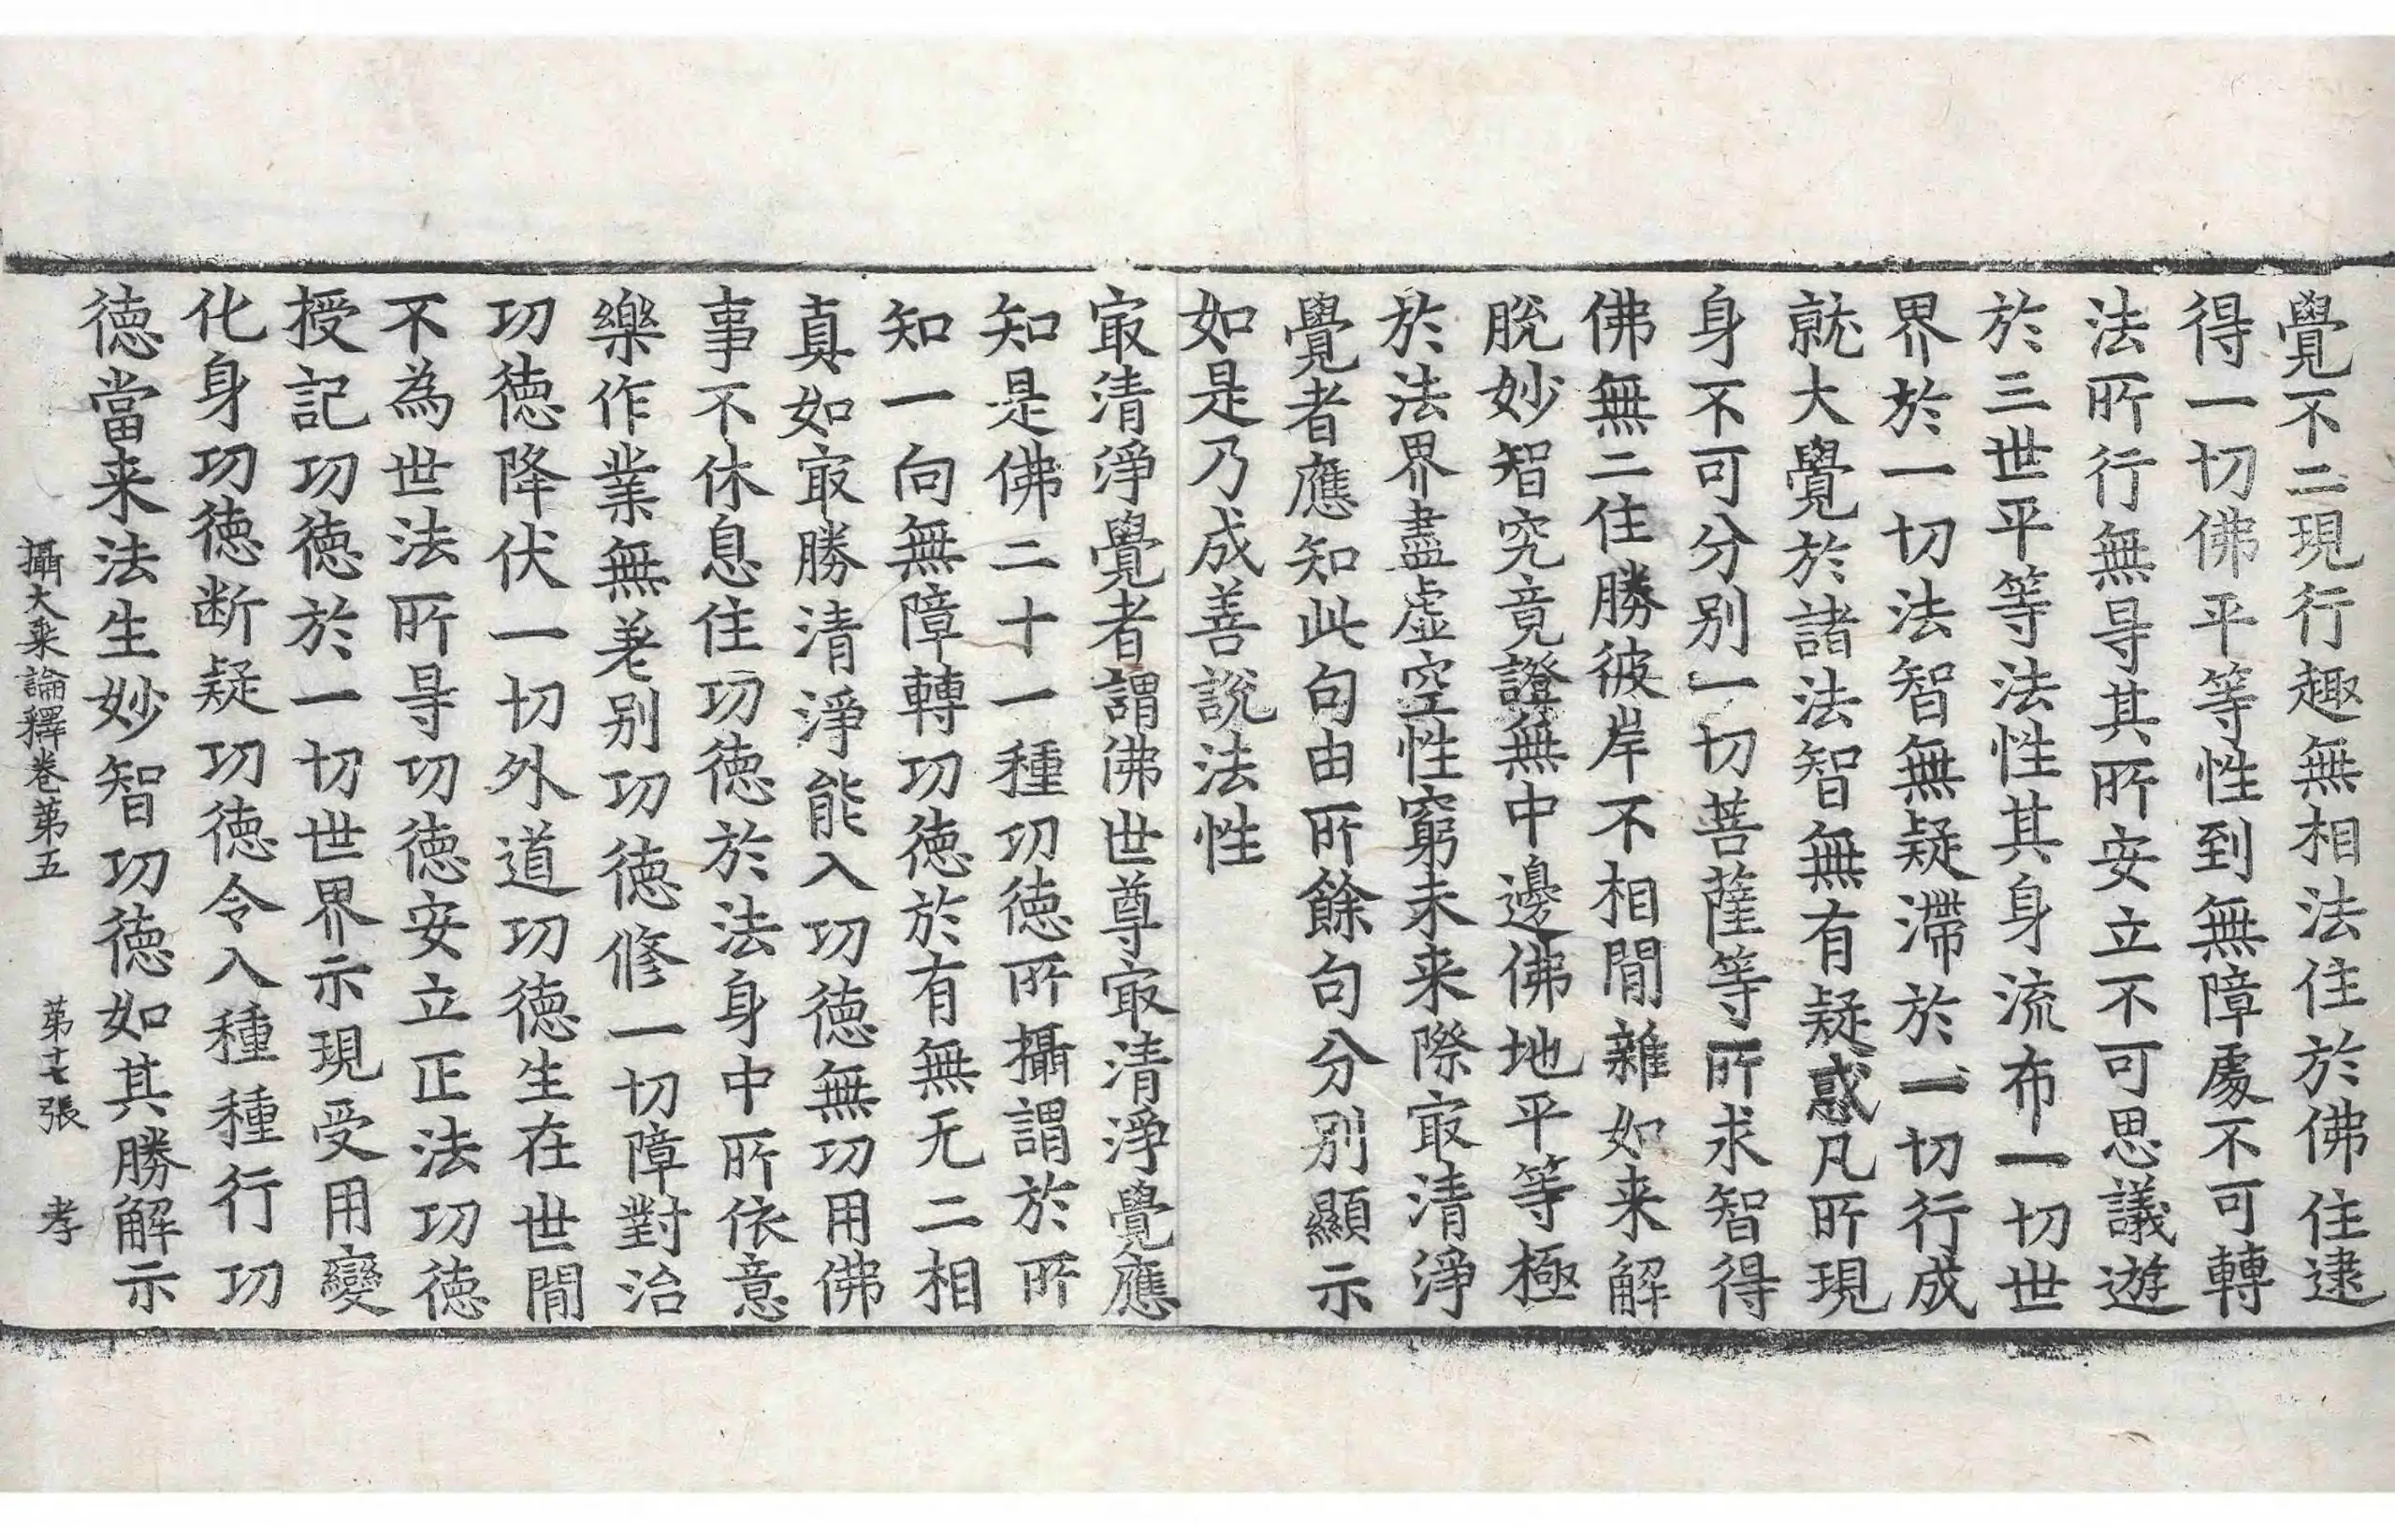 覺不二現行趣無相法住於佛住逮
得一切佛平等性到無障處不可轉
法所行無㝵其所安立不可思議遊
於三世平等法性其身流布一切世
界於一切法智無疑滯於一切行成
就大覺於諸法智無有疑惑凡所現
身不可分別一切菩薩等所求智得
佛無二住勝彼岸不相閒雜如来解
脫妙智究竟證無中邊佛地平等極
於法界盡虛空性窮未来際㝡清淨
覺者應知此句由所餘句分別顯示
如是乃成善說法性
㝡清淨覺者謂佛世尊㝡清淨覺應
知是佛二十一種功德所攝謂於所
知一向無障轉功德於有無无二相
真如㝡勝清淨能入功德無功用佛
事不休息住功德於法身中所依意
樂作業無差別功德修一切障對治
功德降伏一切外道功德生在世閒
不為世法所㝵功德安立正法功德
授記功德於一切世界示現受用變
化身功德断疑功德令入種種行功
德當来法生妙智功德如其勝解示
攝大乗論釋卷第五 第十七張 孝